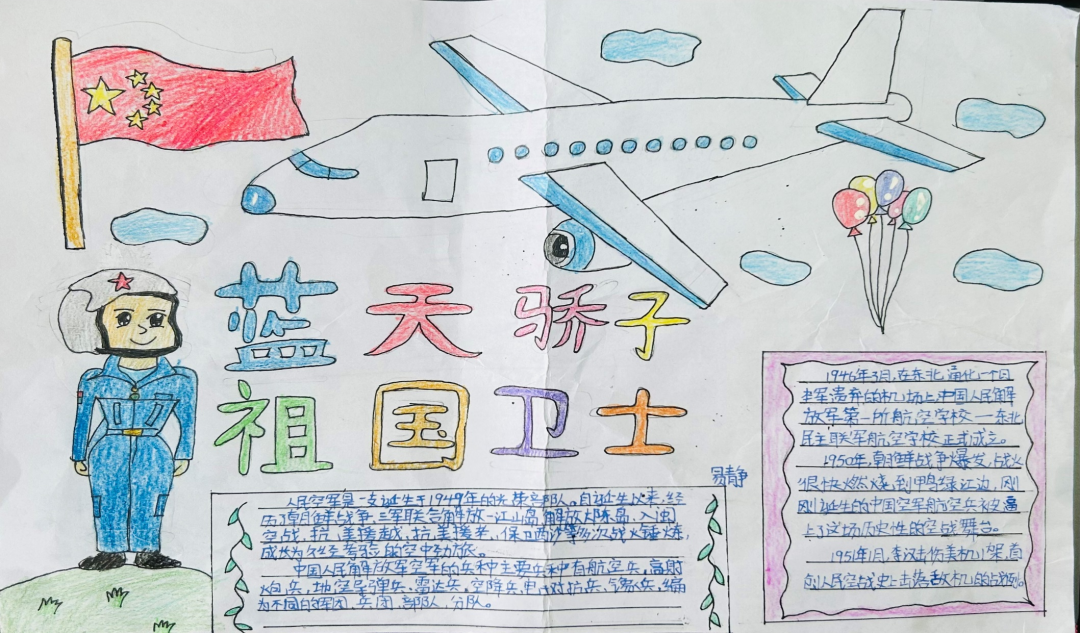 蓝天骄子
祖国卫士
易青静
人民空军是一支诞生于1949年的光荣部队。自诞生以来,经
历了朝鲜战争、三军联合解放一江山岛、解放大陈岛、入闽
空战、抗美援越、抗美援老、保卫西沙等多次战火锤炼,
成长为久经考验的空中劲旅。
中国人民解放军空军的兵种主要兵种有航空兵、高射
炮兵、地空导弹兵、雷达兵、空降兵、电子对抗兵、
为不同的军团、兵团、部队、分队。
1946年3月,在东北通化一个日
军遗弃的机场上,中国人民解
放军第一所航空学校一东北
民主联军航空学校正式成立。
1950年,朝鲜战争爆发,战火
很快燃烧到鸭绿江边,刚
刚诞生的中国空军航空兵被逼
上了这场历史性的空战舞台。
1951年1月,李汉击伤美机1架,首
创人民空战史上击落敌机的战例。